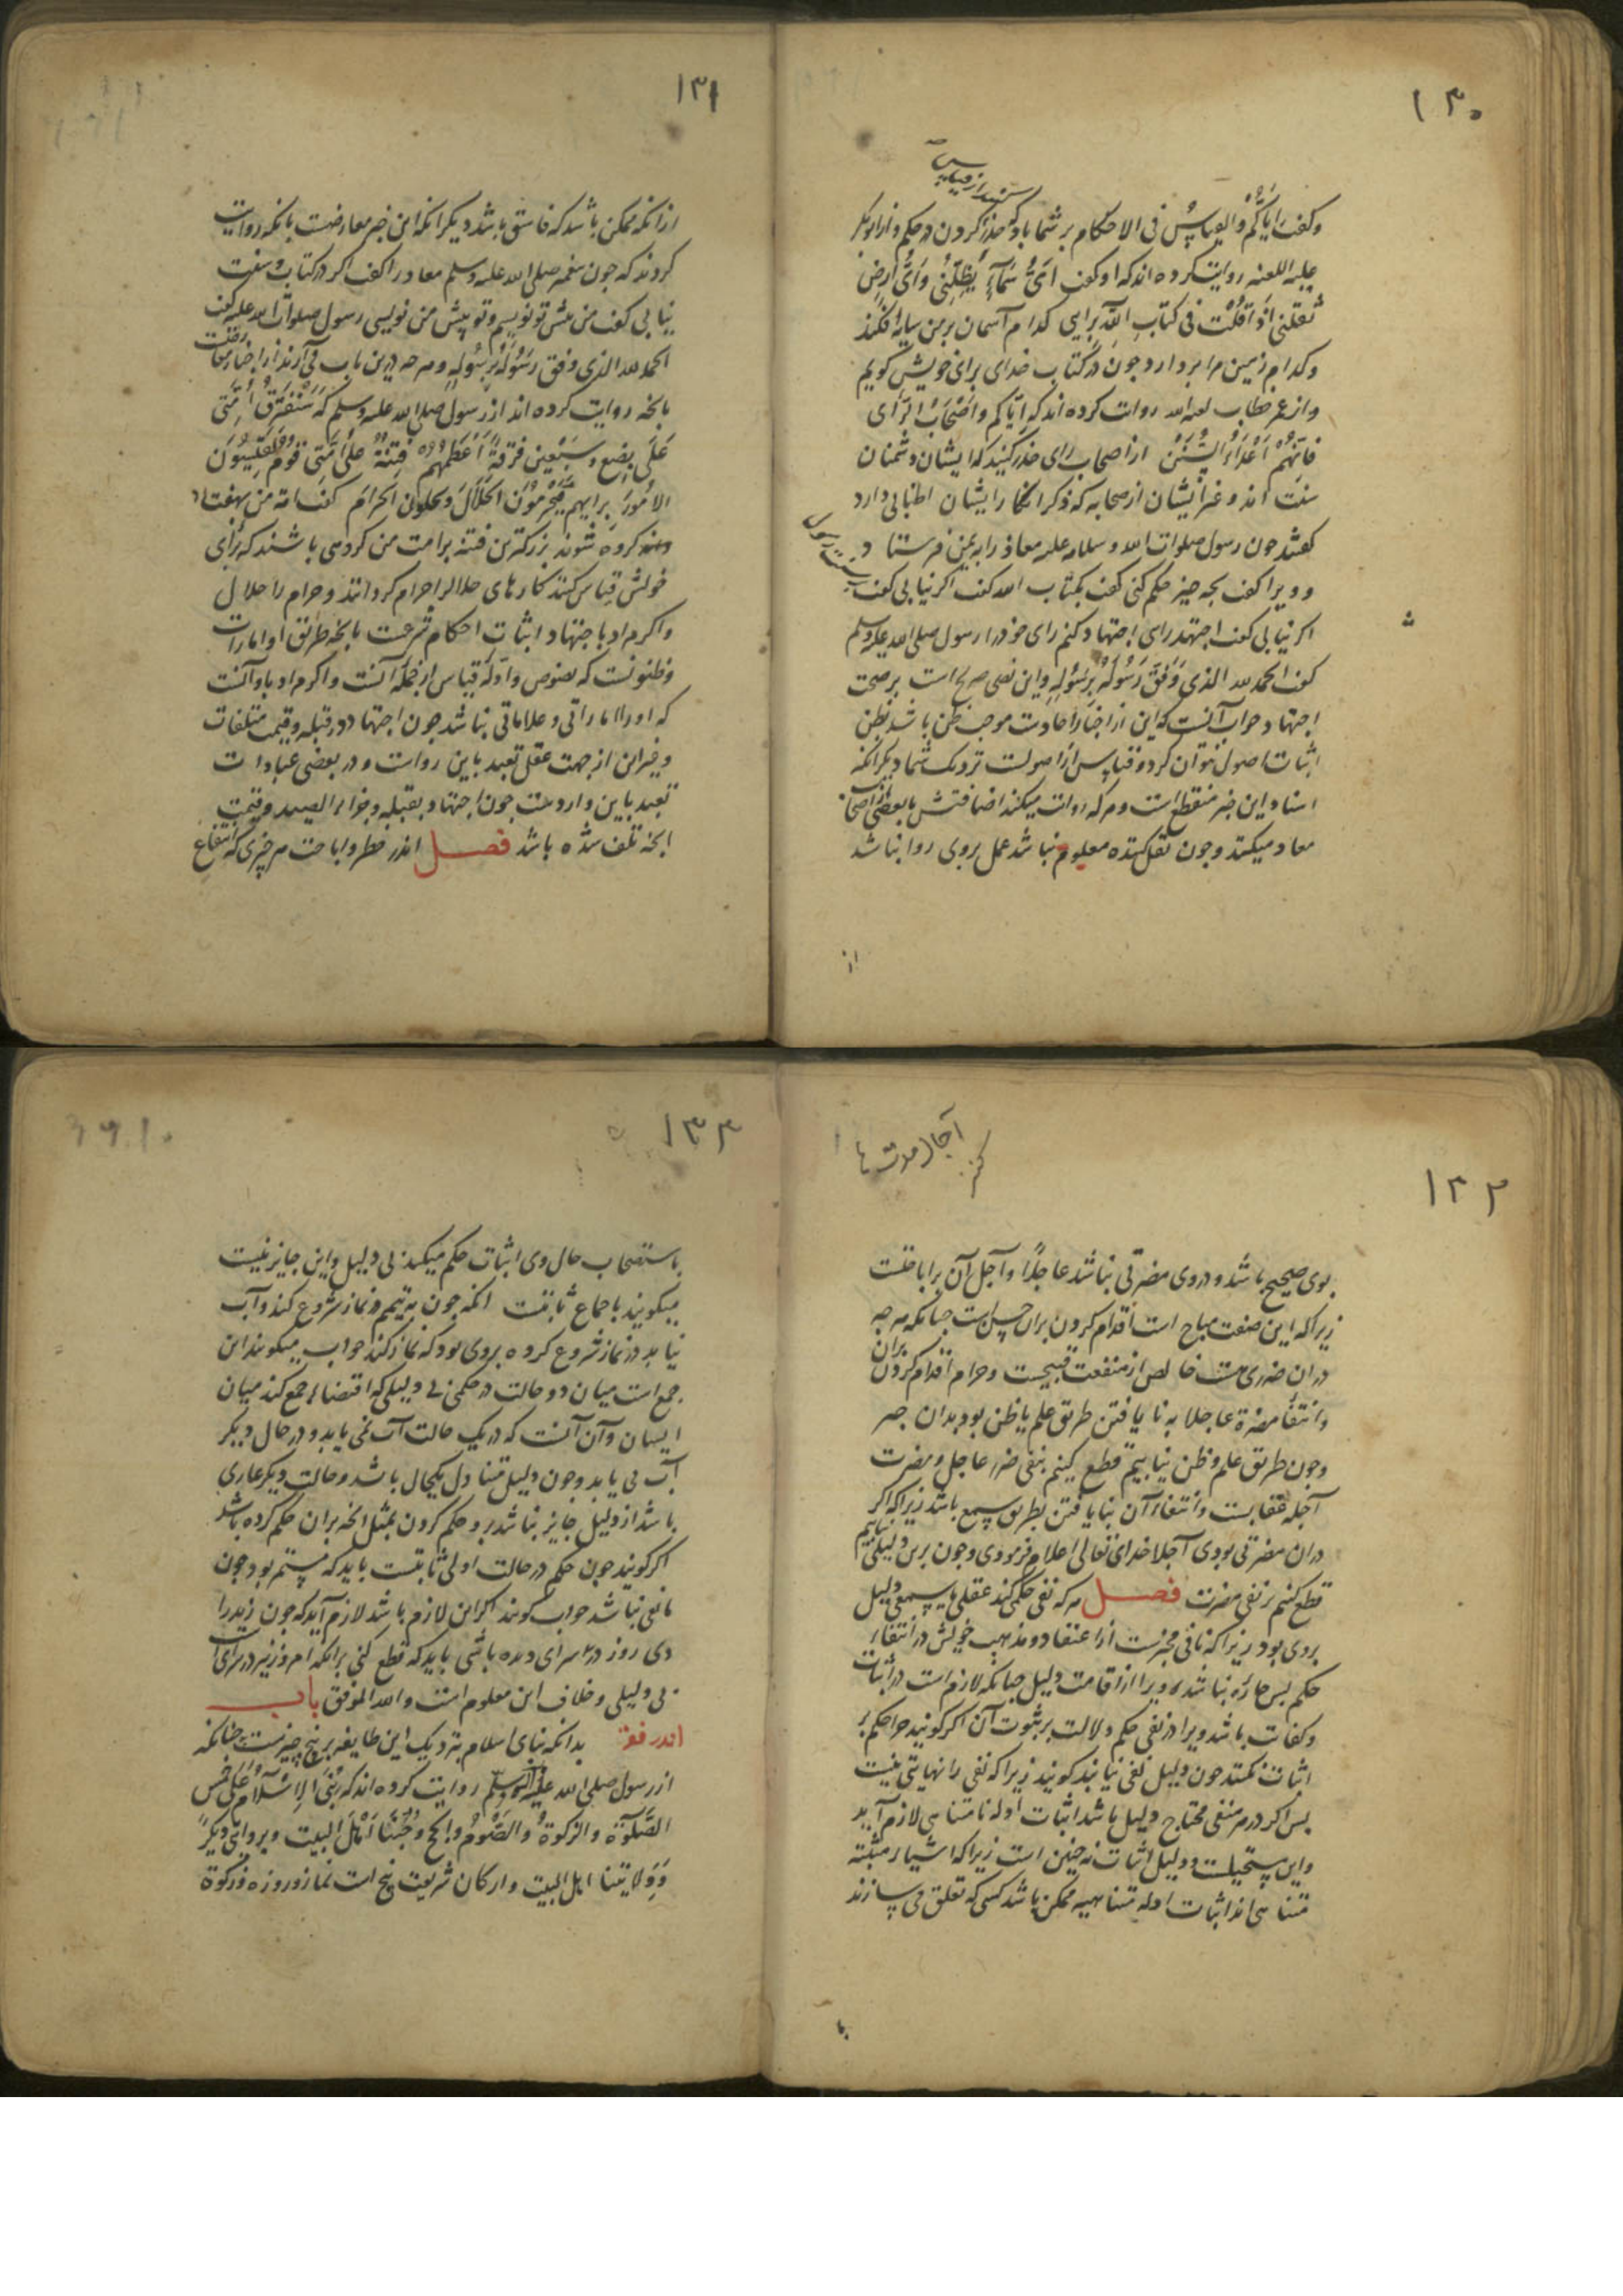 ۱۳۰
وکفت ایاکم والقیاس فی الاحکام بر شما باد حذر کردن در حکم و از ابوبکر
علیه اللعنه روایت کرده اند که او کفت ای سماء یظلنی وای ارض
تقلنی اذا قلت فی کتاب الله برایی کدام آسمان بر من سایه افکند
وکدام زمین مرا بردارد جون در کتاب خدای برای خویش کویم
واز عمر خطاب لعنه الله روایت کرده اند که ایاکم واصحاب الرای
فانهم اعداء السنن از اصحاب رای حذر کنید که ایشان دشمنان
سنت اند و غیر ایشان از صحابه که ذکر انکار ایشان اطنابی دارد
کفتند جون رسول صلوات الله وسلامه علیه معاذ را به یمن فرستاد
و ویرا کفت بجه جیز حکم کنی کفت بکتاب الله کفت اکر نیابی کفت بسنت رسول
اکر نیابی کفت اجتهد رای اجتهاد کنم رای خود را رسول صلی الله علیه وسلم
کفت الحمد لله الذی وفق رسول رسوله واین نص صریح است بر صحت
اجتهاد جواب آنست که این از اخبار احادست موجب ظن باشد بظن
اثبات اصول نتوان کرد و قیاس از اصولست نزدیک شما دیکر انکه
اسناد این خبر منقطع است و هر که روایت میکند اضافتش بابعضی از اصحاب
معاد میکند وجون نقل کننده معلوم نباشد عمل بروی روا نباشد
از
۱۳۱
از انکه ممکن باشد که فاسق باشد دیکر انکه این خبر معارضست بانکه روایت
کردند که جون پیغمبر صلی الله علیه وسلم معاد را کفت اکر در کتاب وسنت
نیابی کفت من پیش تو نویسم و تو پیش من نویسی رسول صلوات الله علیه کفت
الحمد لله الذی وفق رسول رسوله و هر جه درین باب می آرند از اخبار
بانجه روایت کرده اند از رسول صلی الله علیه وسلم که ستفترق امتی
علی بضع وسبعین فرقة اعظمهم فتنة علی امتی قوم یقیسون
الامور برایهم فیحرمون الحلال ویحلون الحرام کفت امت من بهفتاد
واند کروه شوند بزرکترین فتنه بر امت من کروهی باشند که برای
خویش قیاس کنند کارهای حلال را حرام کردانند وحرام را حلال
واکر مراد باجتهاد اثبات احکام شرعت بانجه طریق او امارات
وظنونست که نصوص وادله قیاس از جمله آنست واکر مراد باو آنست
که اورا اماراتی و علاماتی نباشد جون اجتهاد در قبله وقیمت متلفات
وغیر این از جهت عقل تعبد باین رواست ودر بعضی عبادات
تعبد باین وارد ست جون اجتهاد بقبله وجزاء الصید وقیمت
انجه تلف شده باشد فصل اندر حظر واباحت هر جیزی که انتفاع
۱۳۲
آجال مدت ها
کنز
بوی صحیح باشد و در وی مضرتی نباشد عاجلا وآجل آن بر اباحتست
زیرا که این صفت مباح است اقدام کردن بران حسن است جنانکه هر جه
دران ضرری هست خالص از منفعت قبیحست وحرام اقدام کردن بران
وانتفاء مضرة عاجلا به نایافتن طریق علم یا ظن بود بدان جیز
وجون طریق علم وظن نیابیم قطع کنیم بنفی ضرر عاجل ومضرت
آجله عقابست وانتفاء آن بنایافتن بطریق سمع باشد زیرا که اکر
دران مضرتی بودی آجلا خدای تعالی اعلام فرمودی وجون برین دلیلی نیابیم
قطع کنیم بر نفی مضرت فصل هر که نفی حکمی کند عقلی یا سمعی دلیل
بروی بود زیرا که نافی مخبرست از اعتقاد ومذهب خویش در انتفاء
حکم پس جاره نباشد ویرا از اقامت دلیل جنانکه لازم است در اثبات
وکفایت باشد ویرا در نفی حکم دلالت بر ثبوت آن اکر کویند جرا حکم بر
اثبات نکنند جون دلیل نفی نیابند کویند زیرا که نفی را نهایتی نیست
پس اکر در هر منفی محتاج دلیل باشد اثبات ادله نامتناهی لازم آید
واین مستحیلست ودلیل اثبات نه جنین است زیرا که اشیاء مثبته
متناهی اند اثبات ادله متناهیه ممکن باشد کسی که تعلق می سازند
با
۱۳۳
باستصحاب حال وی اثبات حکم میکند بی دلیل واین جایز نیست
میکویند باجماع ثابتست انکه جون به تیمم در نماز شروع کند وآب
نیابد در نماز شروع کرده بروی بود که نماز کند جواب میکویند این
جمع است میان دو حالت در حکمی بی دلیلی که اقتضاء جمع کند میان
ایشان وآن آنست که در یک حالت آب نمی یابد و در حال دیکر
آب می یابد وجون دلیل متناول یکحال باشد وحالت دیکر عاری
باشد از دلیل جایز نباشد بر و حکم کردن بمثل انجه بران حکم کرده باشد
اکر کویند جون حکم در حالت اولی ثابتست باید که مستمر بود جون
مانعی نباشد جواب کویند اکر این لازم باشد لازم آید که جون زید را
دی روز در سرای دیده باشی باید که قطع کنی برانکه امروز نیز در سرای است
بی دلیلی وخلاف این معلوم است والله الموفق باب
اندر فقه بدانکه بنای اسلام بنزدیک این طایفه بر پنج چیزست جنانکه
از رسول صلی الله علیه وآله وسلم روایت کرده اند که بنی الاسلام علی خمس
الصلوة والزکوة والصوم والحج وحبنا اهل البیت وبروایتی دیکر
وولایتنا اهل البیت وارکان شریعت پنج است نماز و روزه وزکوة